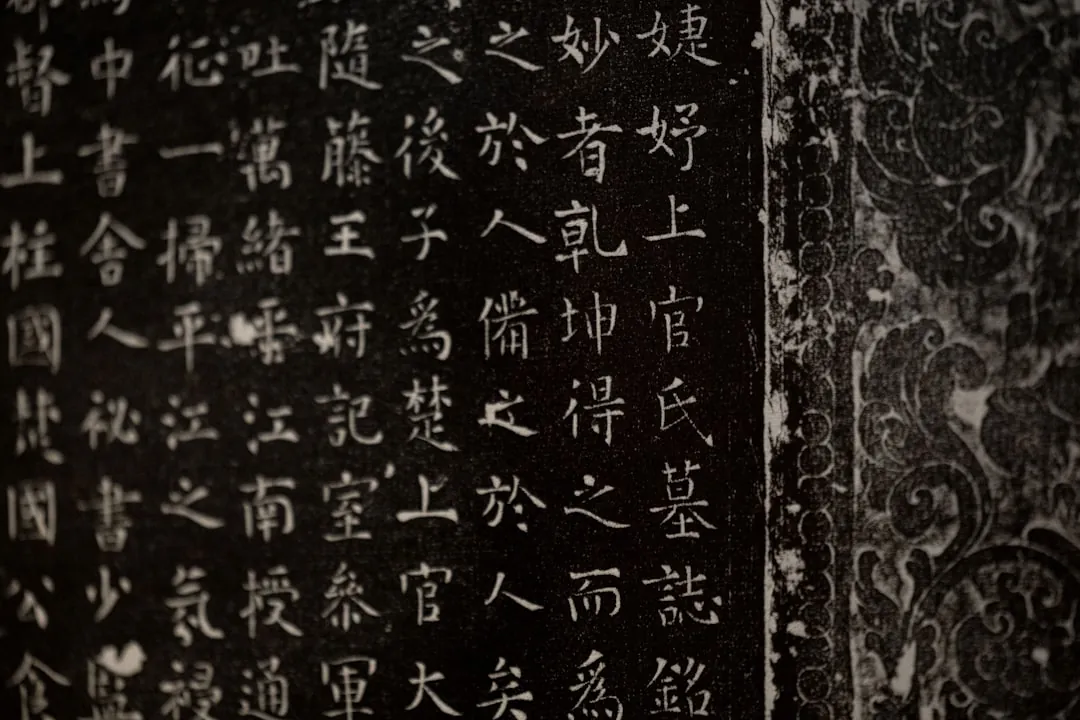 婕妤上官氏墓誌銘
妙者乹坤得之而爲
之於人備之於人矣
之後子爲楚上官大
隨籐王府記室叅軍
吐萬緒平江南授通
征一掃平江之氛祲
中書舍人祕書少監
督上柱國楚國公食